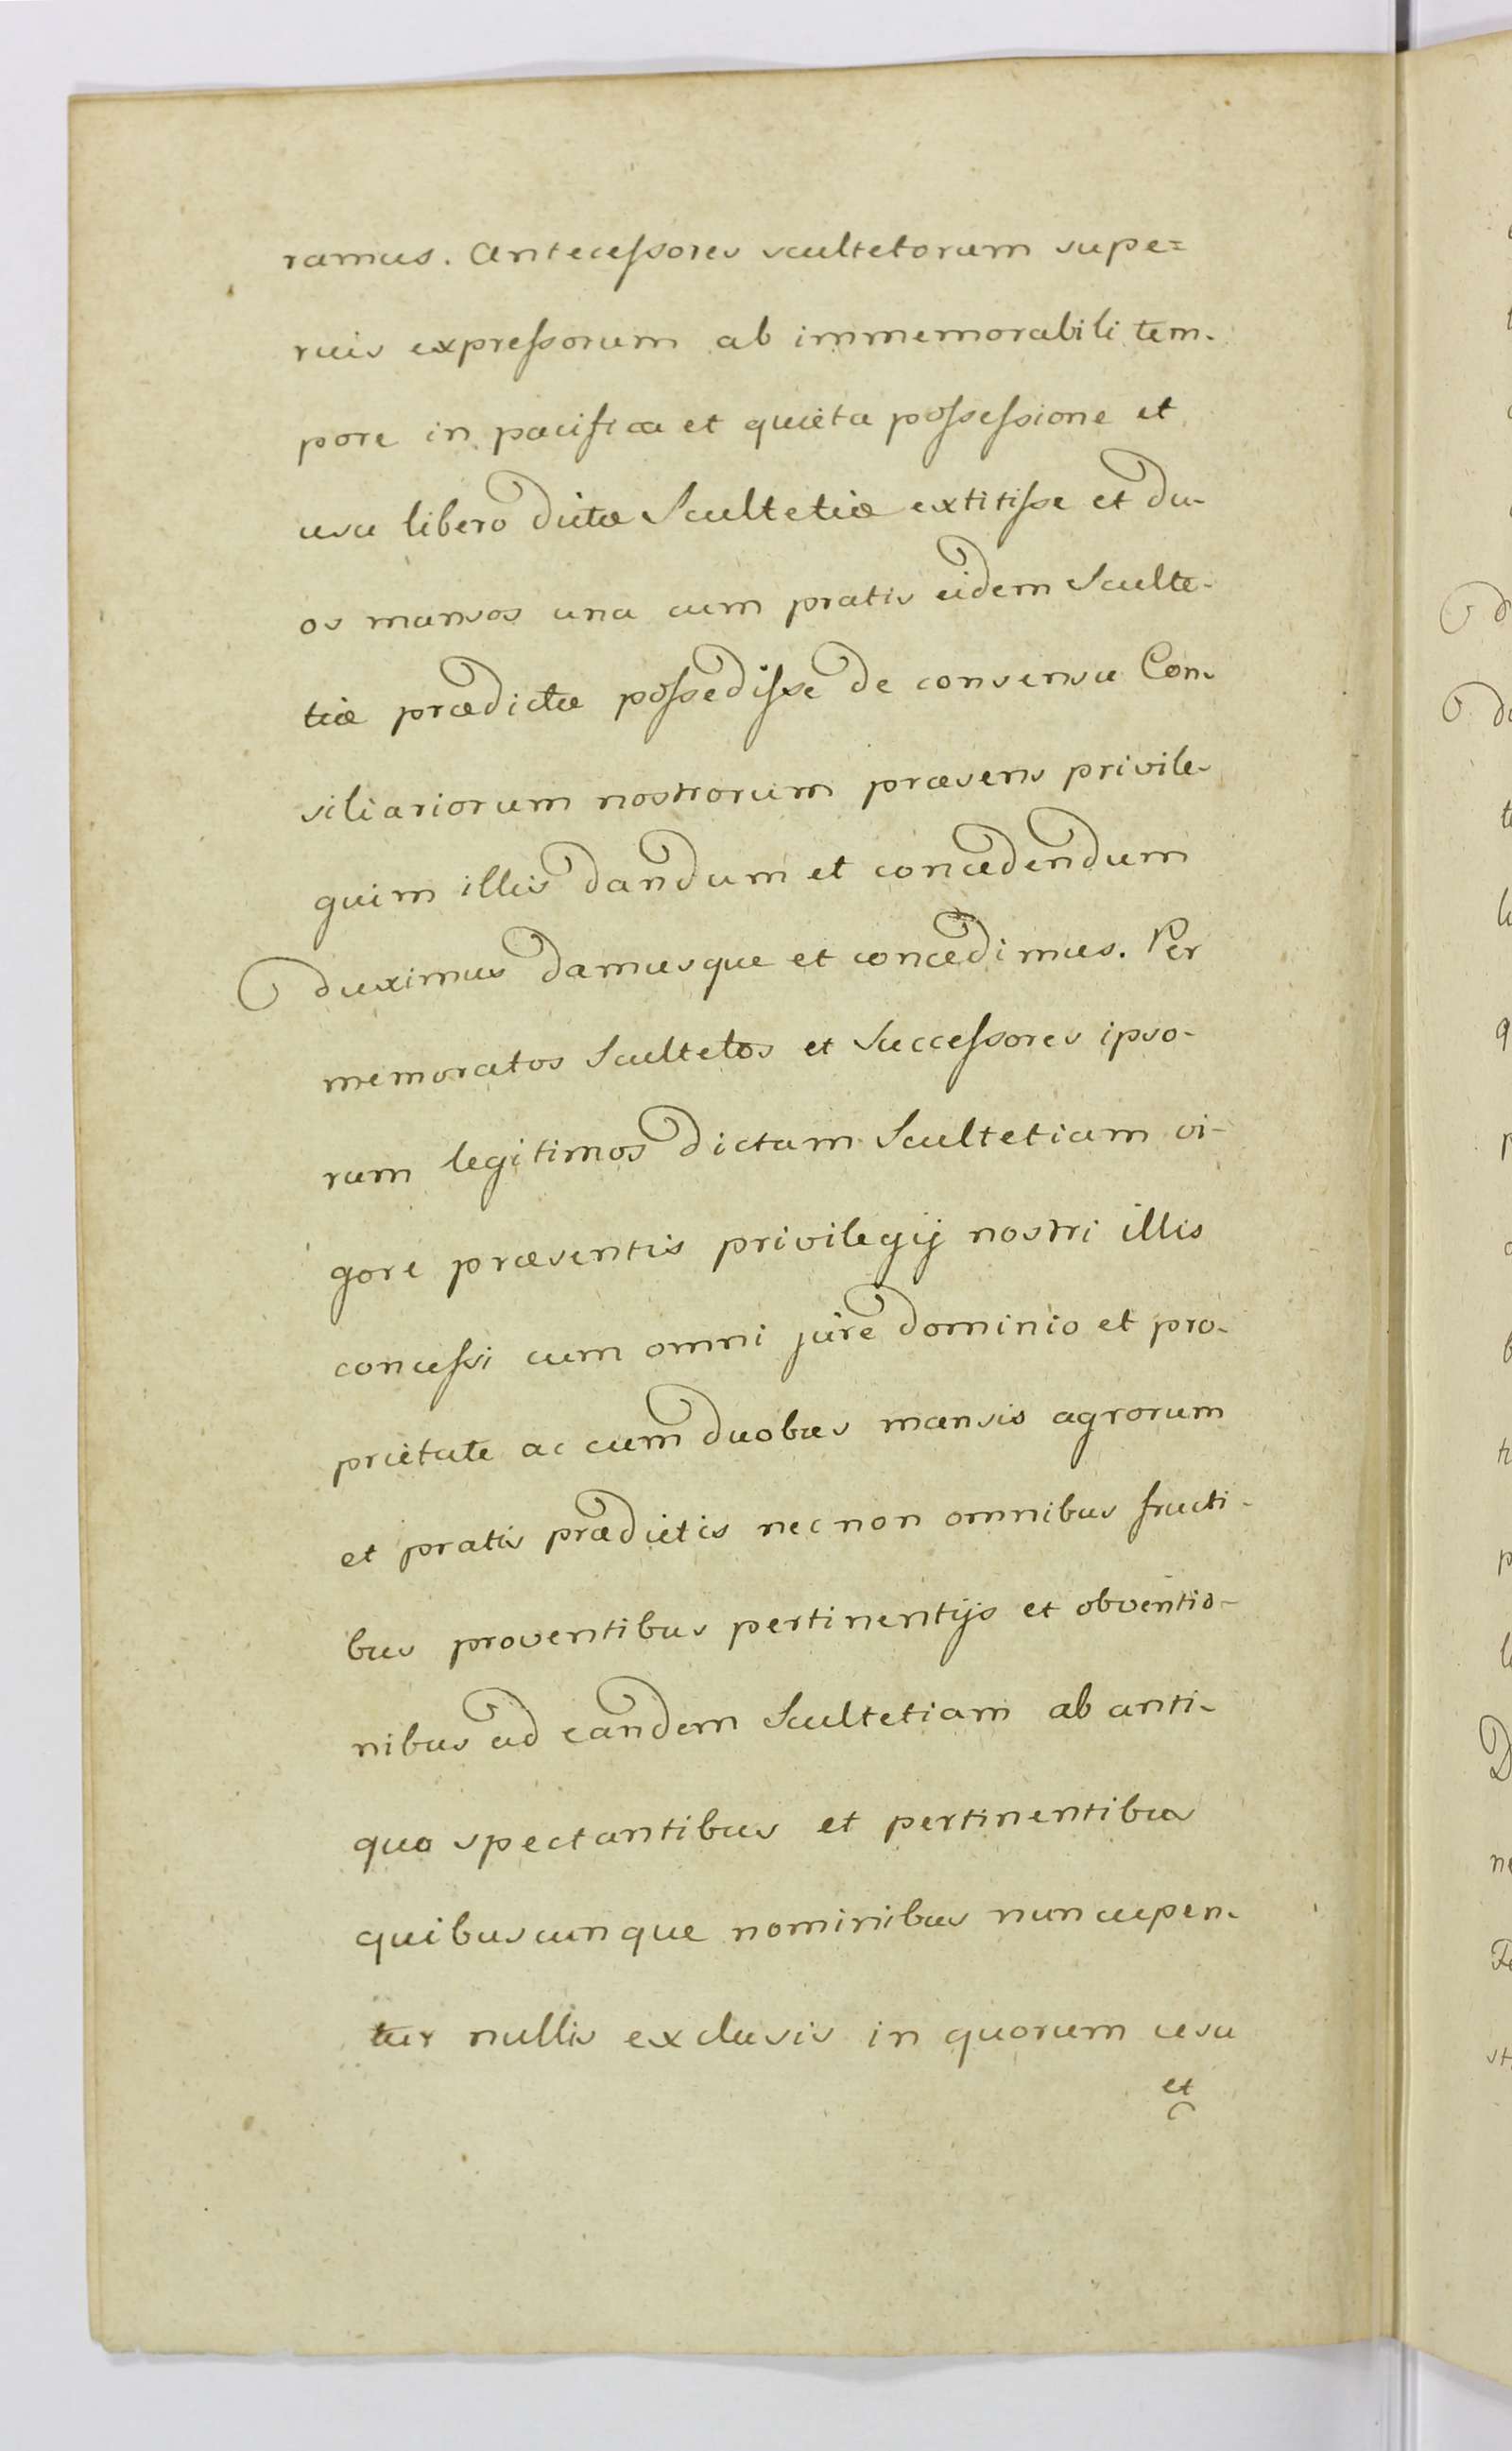 ramus. Antecessores scultetorum supe=
rius expressorum ab immemorabili tem-
pore in pacifica et quieta possessione et
usu libero dictæ Scultetiæ extitisse et du-
os mansos una cum pratis eidem Sculte-
tiæ prædictæ possedisse de consensu Con-
siliariorum nostrorum præsens privile-
guim illis dandum et concedendum
duximus damusque et concedimus. Per
memoratos Scultetos et Successores ipso-
rum legitimos dictam Scultetiam vi-
gore præsentis privilegij nostri illis
concessi cum omni jure dominio et pro-
prietate ac cum duobus mansis agrorum
et pratis prædictis nec non omnibus fructi-
bus proventibus pertinentijs et obventio-
nibus ad eandem Scultetiam ab anti-
quo spectantibus et pertinentibus
quibuscunque nominibus nuncupen-
tur nullis exclusis in quorum usu
et